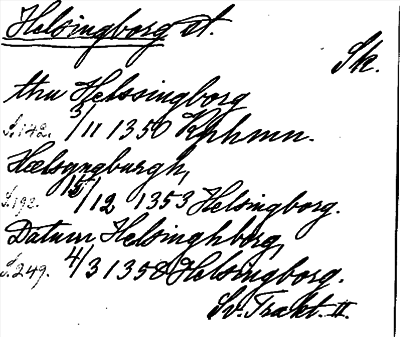 Helsingborg st.
Sk.
thu Helssingborg
S. 142. 3/11 1350 Kphmn.
Hælsyngburgh,
S. 192. 15/12 1353 Helsingborg.
Datum Helsinghborg,
S. 249. 4/3 1358 Helsingborg.
Sv. Trakt. II.